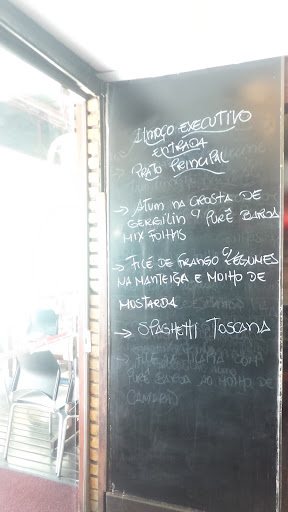 ALMOÇO EXECUTIVO
ENTRADA
PRATO PRINCIPAL
→ ATUM NA CROSTA DE
GERGILIN C/ PURÊ BAROA
MIX FOLHAS
→ FILÉ DE FRANGO C/ LEGUMES
NA MANTEIGA E MOLHO DE
MOSTARDA
→ SPAGHETTI TOSCANA
→ FILÉ DE TILAPIA COM
PURÊ BAROA AO MOLHO DE
(CAMARÃO)